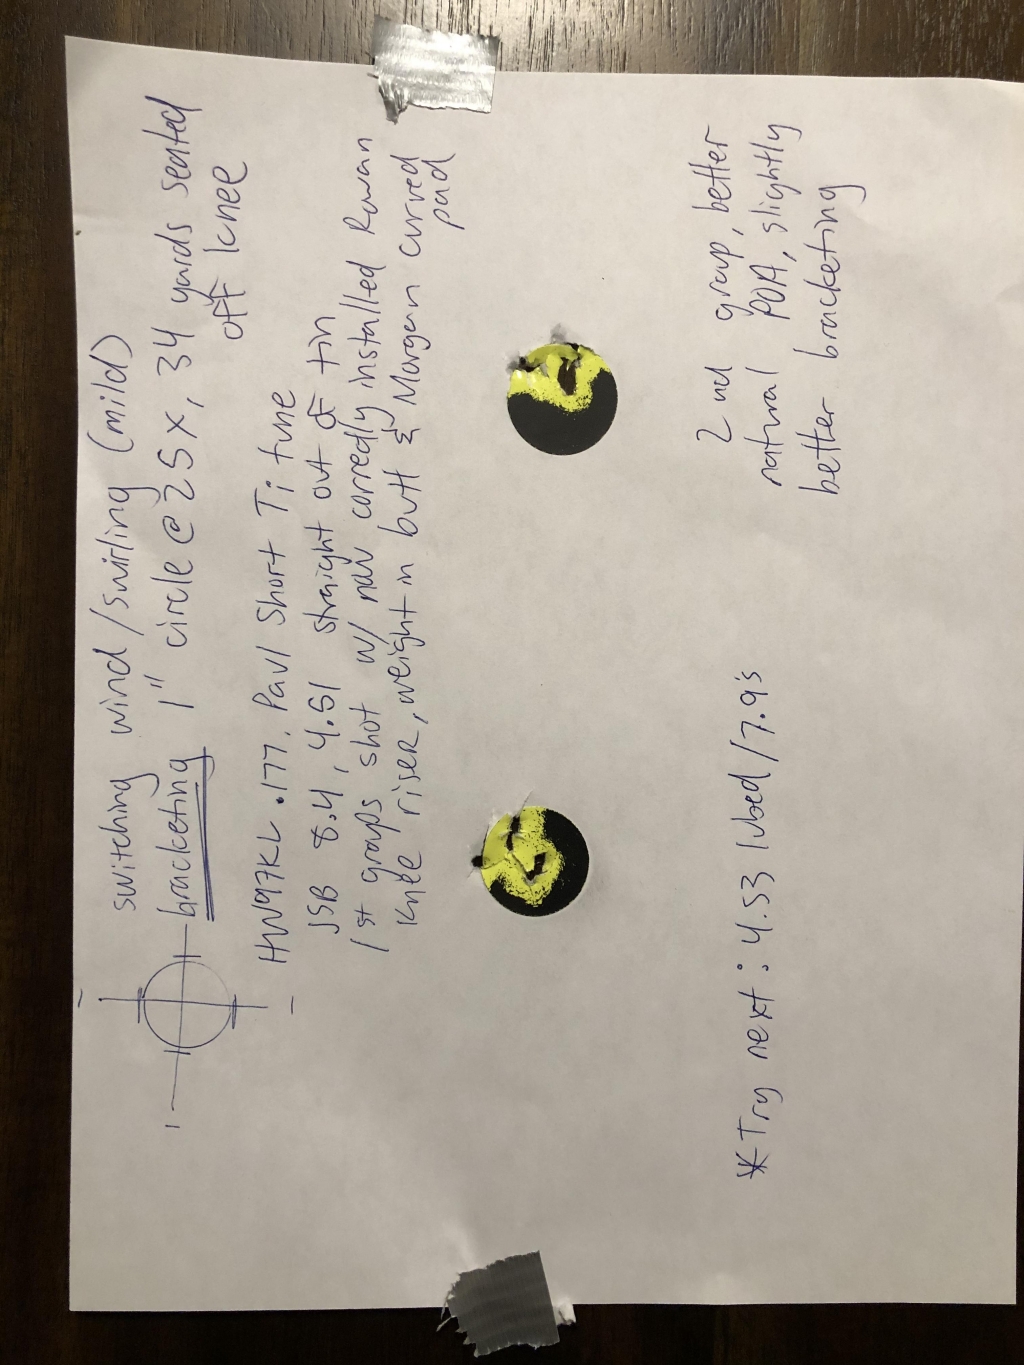 switching wind/swirling (mild)
bracketing 1" circle @ 25x, 34 yards seated
off knee
HW97KL .177, Paul Short Ti tune
JSB 8.4, 4.51 straight out of tin
1st groups shot w/ now correctly installed Rowan
Knee riser, weight in butt & Morgan curved
pad
2nd group, better
natural POA, slightly
better bracketing
*Try next: 4.53 lubed/7.9's